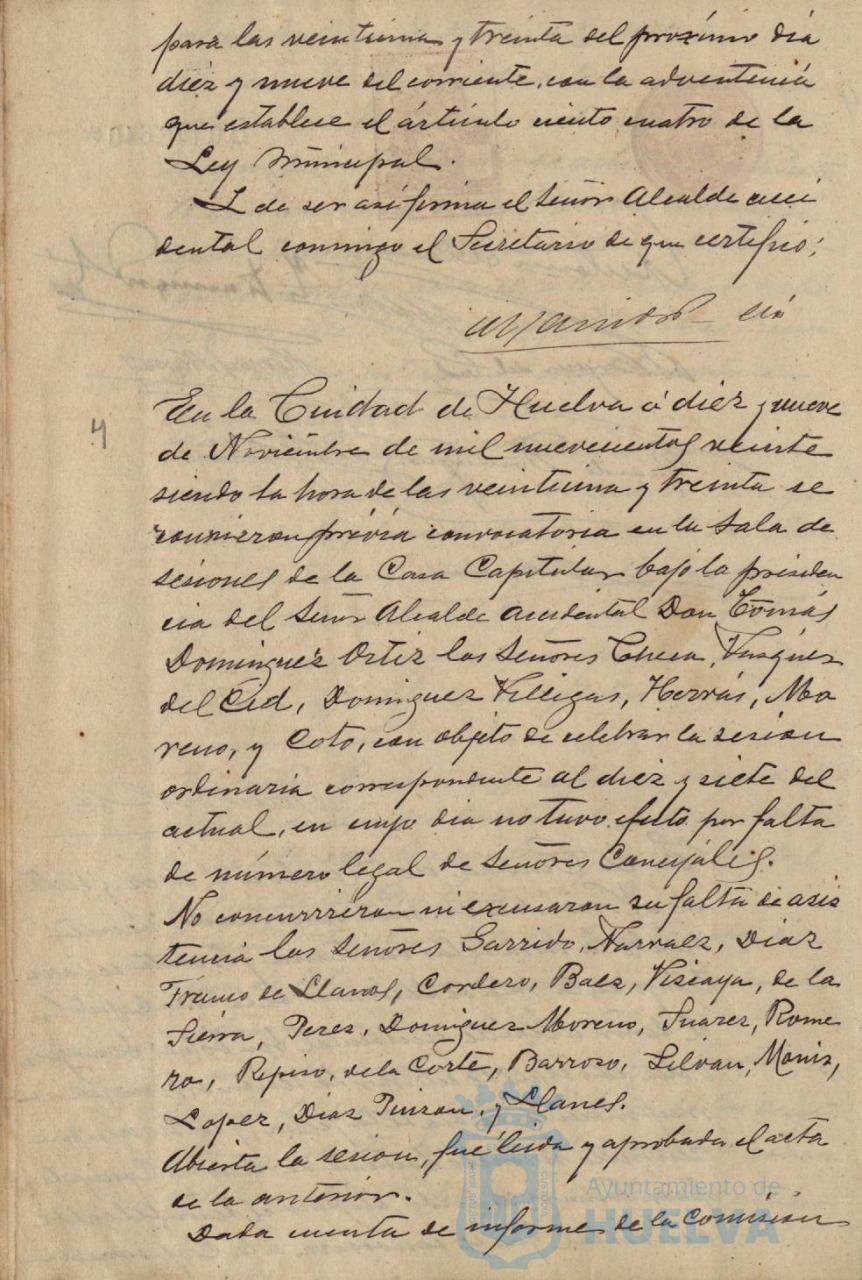 para las veintiuna y treinta del proximo dia
diez y nueve del corriente, con la advertencia
que establece el artículo ciento cuatro de la
Ley Municipal.
Y de ser asi firma el Señor Alcalde acci
dental conmigo el Secretario de que certifico:
En la Ciudad de Huelva á diez y nueve
4
de Noviembre de mil nuevecientos veinte
siendo la hora de las veintiuna y treinta se
reunieron prévia convocatoria en la Sala de
sesiones de la Casa Capitular bajo la presiden
cia del Señor Alcalde accidental Don Tomás
Dominguez Ortiz los Señores Checa, Vazquez
del Cid, Dominguez Villegas, Horrás, Mo
reno, y Coto, con objeto de celebrar la sesion
ordinaria correspondiente al diez y siete del
actual, en cuyo dia no tuvo efecto por falta
de número legal de Señores Concejales.
No concurrieron ni excusaron su falta de asis
tencia los Señores Garrido, Narvaez, Diaz
Franco de Llanos, Cordero, Baez, Viscaya, de la
Sierra, Perez, Dominguez Moreno, Suarez, Rome
ro, Repiso, de la Corte, Barroso, Silvan, Moniz,
Lopez, Diaz Pinzon, y Llanes.
Abierta la sesion, fué leida y aprobada el acta
de la anterior.
Dada cuenta de informe de la Comision
Ayuntamiento de
HUELVA